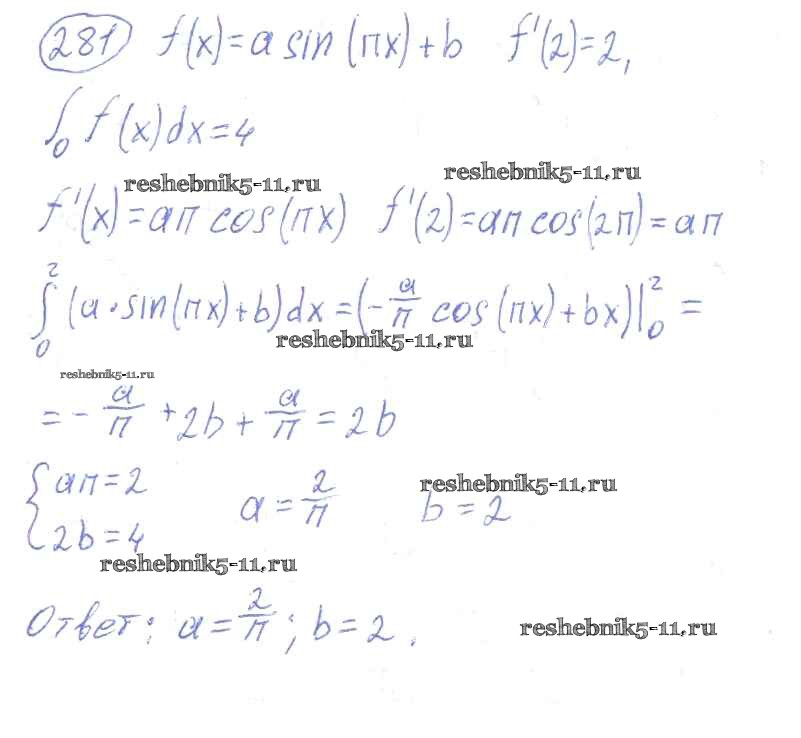 281 f(x)=a sin(πx)+b f'(2)=2,
∫₀ f(x)dx=4
reshebnik5-11.ru reshebnik5-11.ru
f'(x)=aπ cos(πx) f'(2)=aπ cos(2π)=aπ
∫₀² (a·sin(πx)+b)dx=(-a/π cos(πx)+bx)|₀² =
reshebnik5-11.ru
reshebnik5-11.ru
=-a/π+2b+a/π=2b
{aπ=2 a=2/π b=2
reshebnik5-11.ru
2b=4
reshebnik5-11.ru
Ответ: a=2/π; b=2.
reshebnik5-11.ru